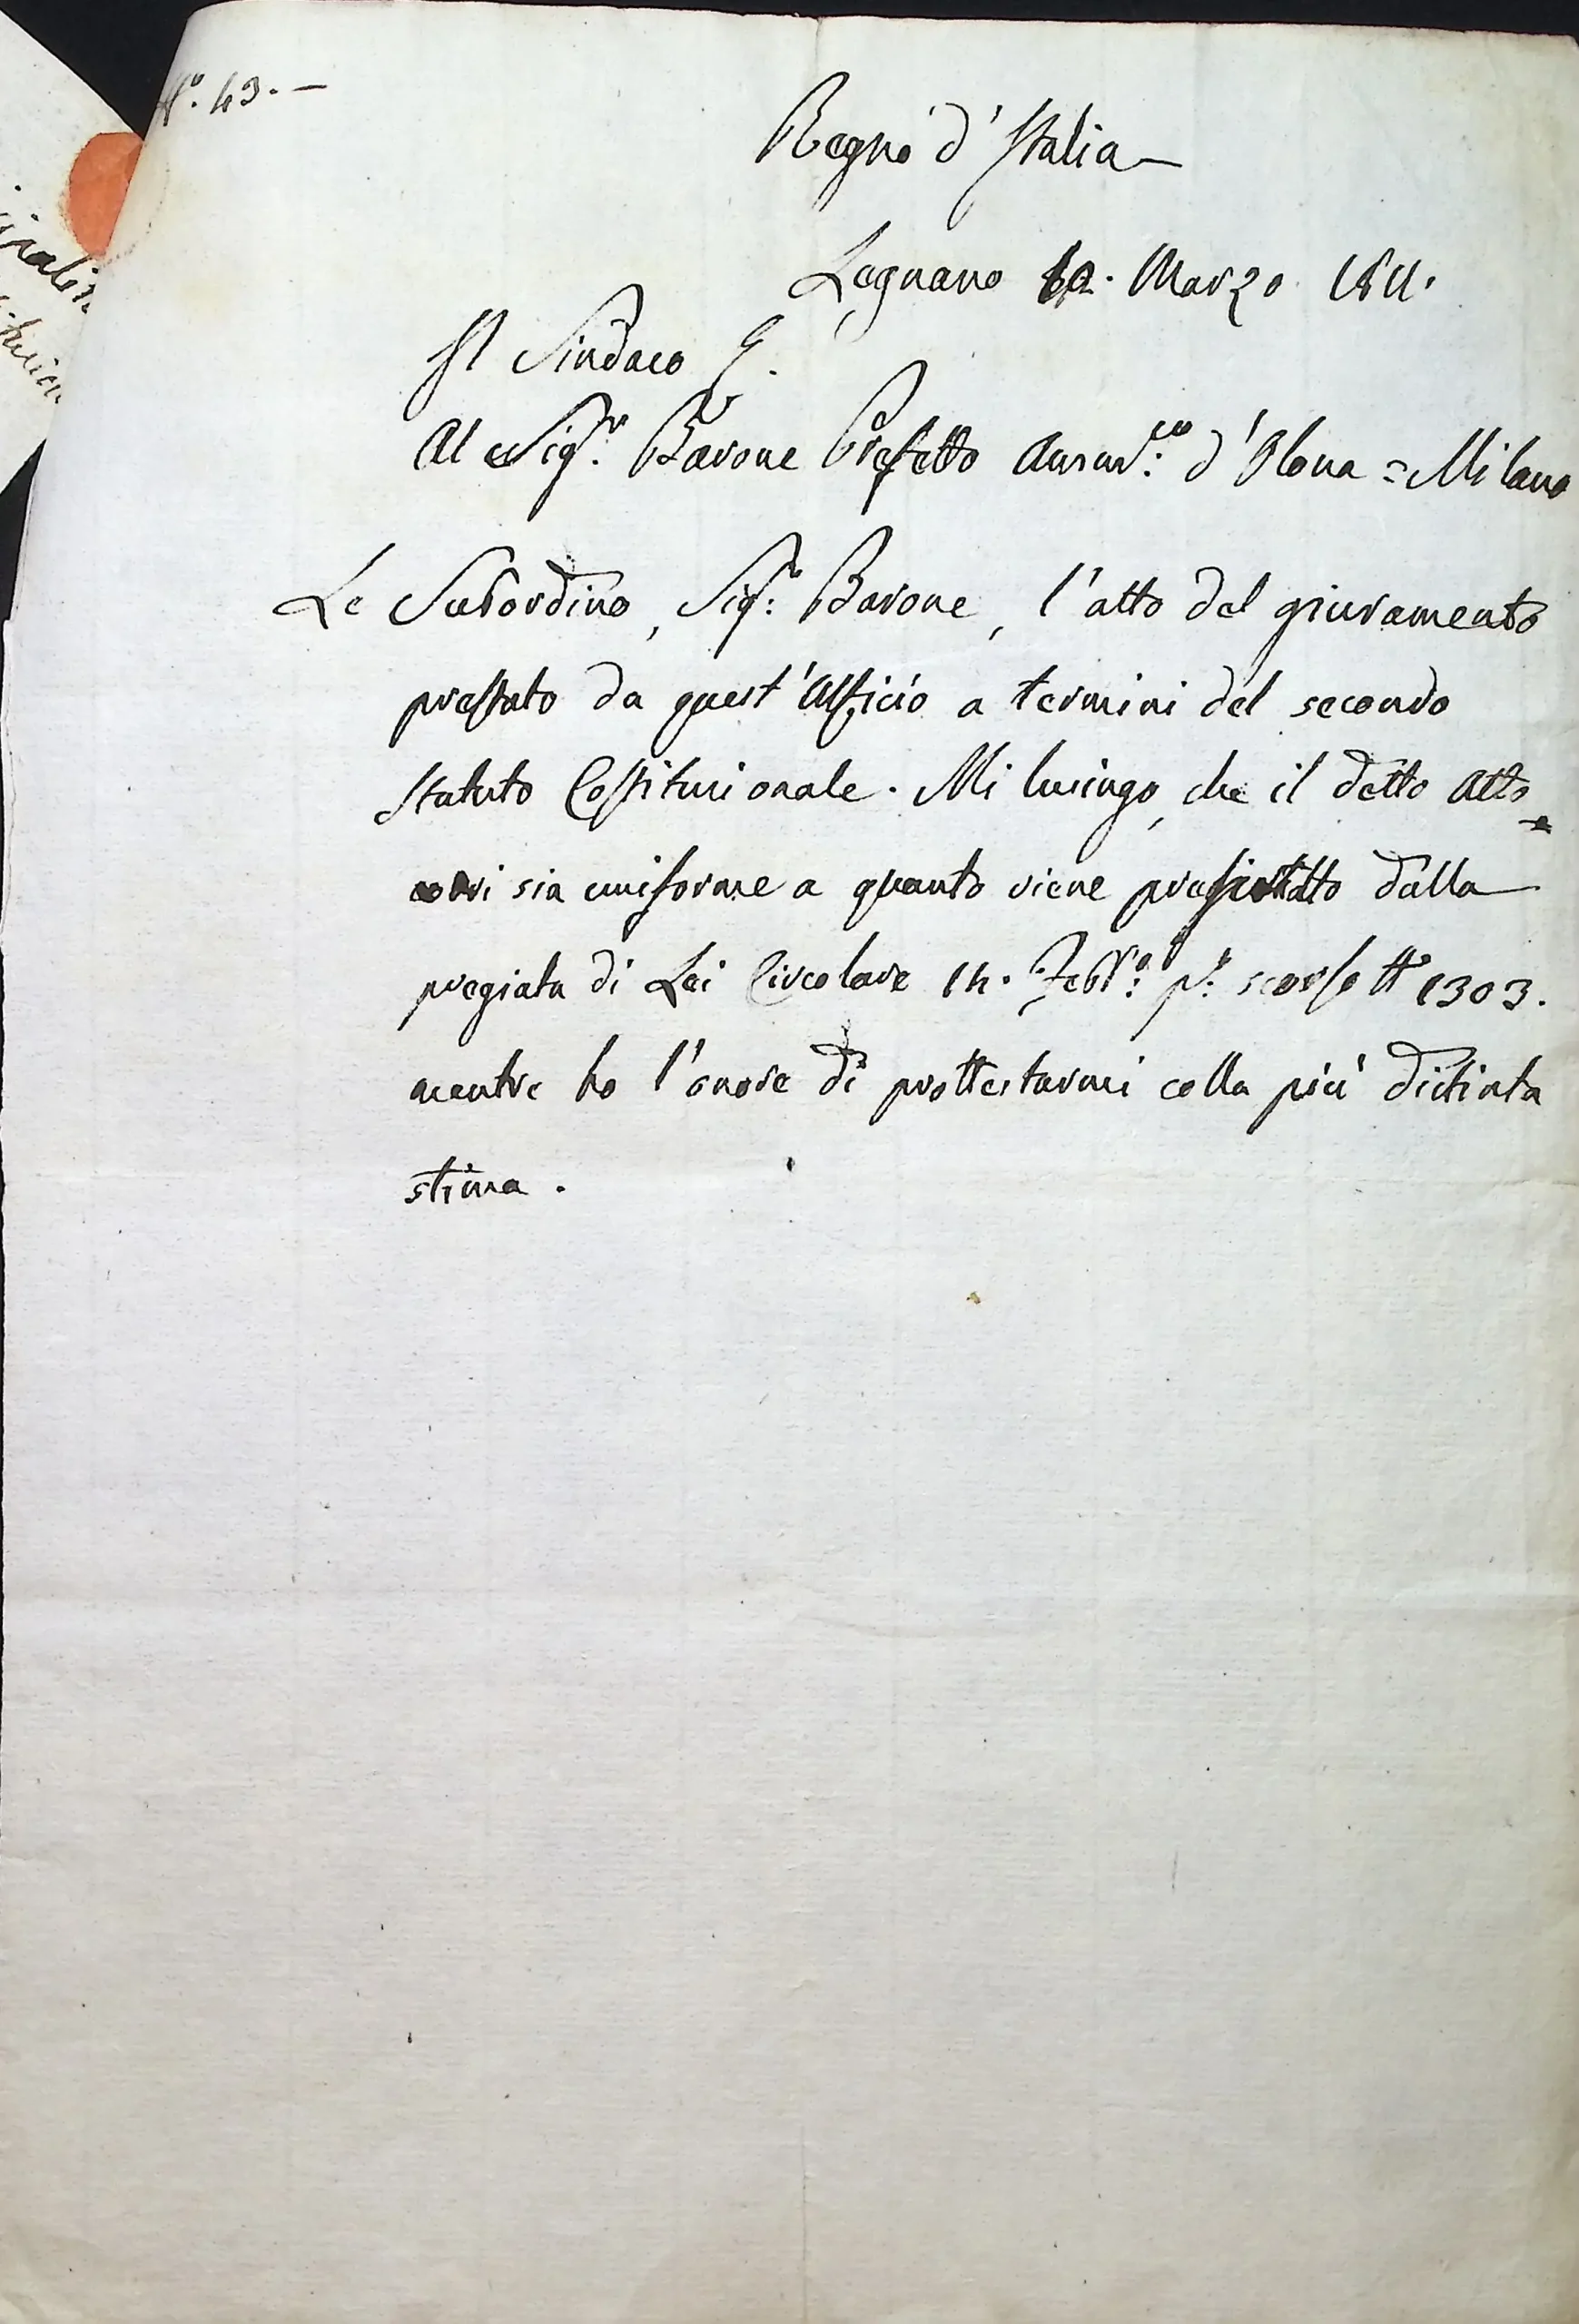 N.° 43. —
Regno d'Italia —
Legnano 12. Marzo 1811.
Il Sindaco
Al Sig.r Barone Prefetto d'Olona = Milano
Le Subordino, Sig.r Barone, l'atto del giuramento
prestato da quest'Ufficio a termini del secondo
Statuto Costituzionale. Mi lusingo, che il detto Atto
sia uniforme a quanto viene dalla
pregiata di Lei Circolare 14. Febb.° p.° scorso N° 1303.
mentre ho l'onore di prottestarmi colla più distinta
stima.